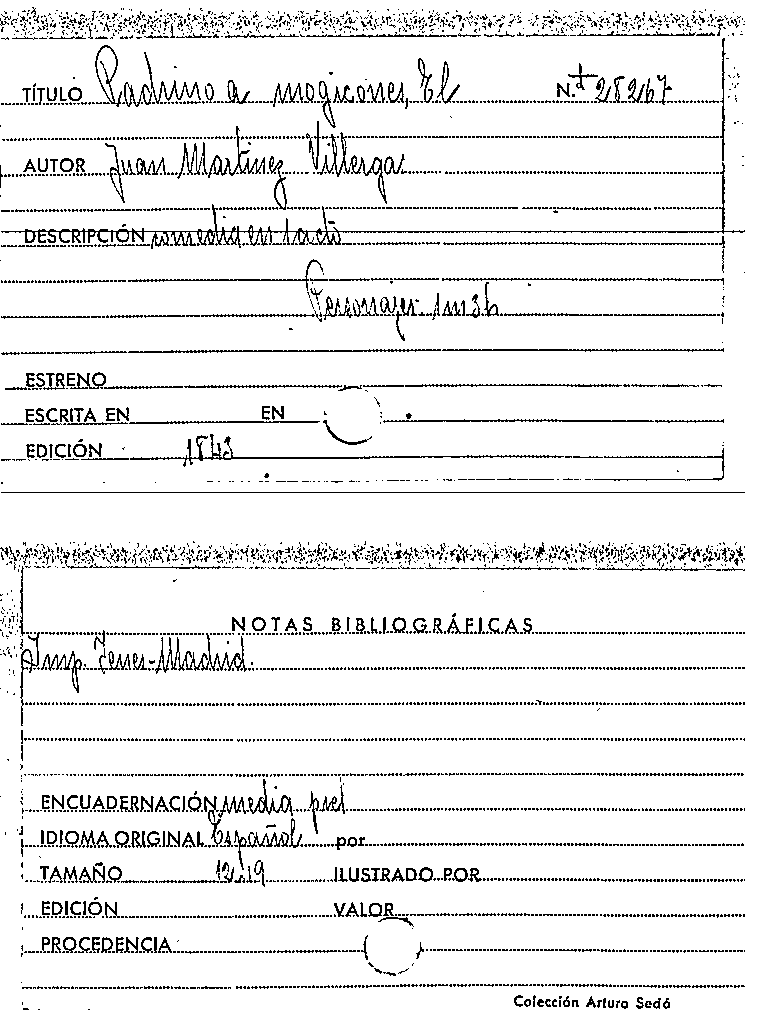 TÍTULO Padrino a mogicones, El N.º 28267
AUTOR Juan Martinez Villerga
DESCRIPCIÓN comedia en 1 acto
Personajes 1m3h
ESTRENO
ESCRITA EN EN
EDICIÓN 1843
NOTAS BIBLIOGRÁFICAS
Imp. Yenes-Madrid.
ENCUADERNACIÓN media piel
IDIOMA ORIGINAL Español por
TAMAÑO 12.19 ILUSTRADO POR
EDICIÓN VALOR
PROCEDENCIA
Colección Arturo Sedó